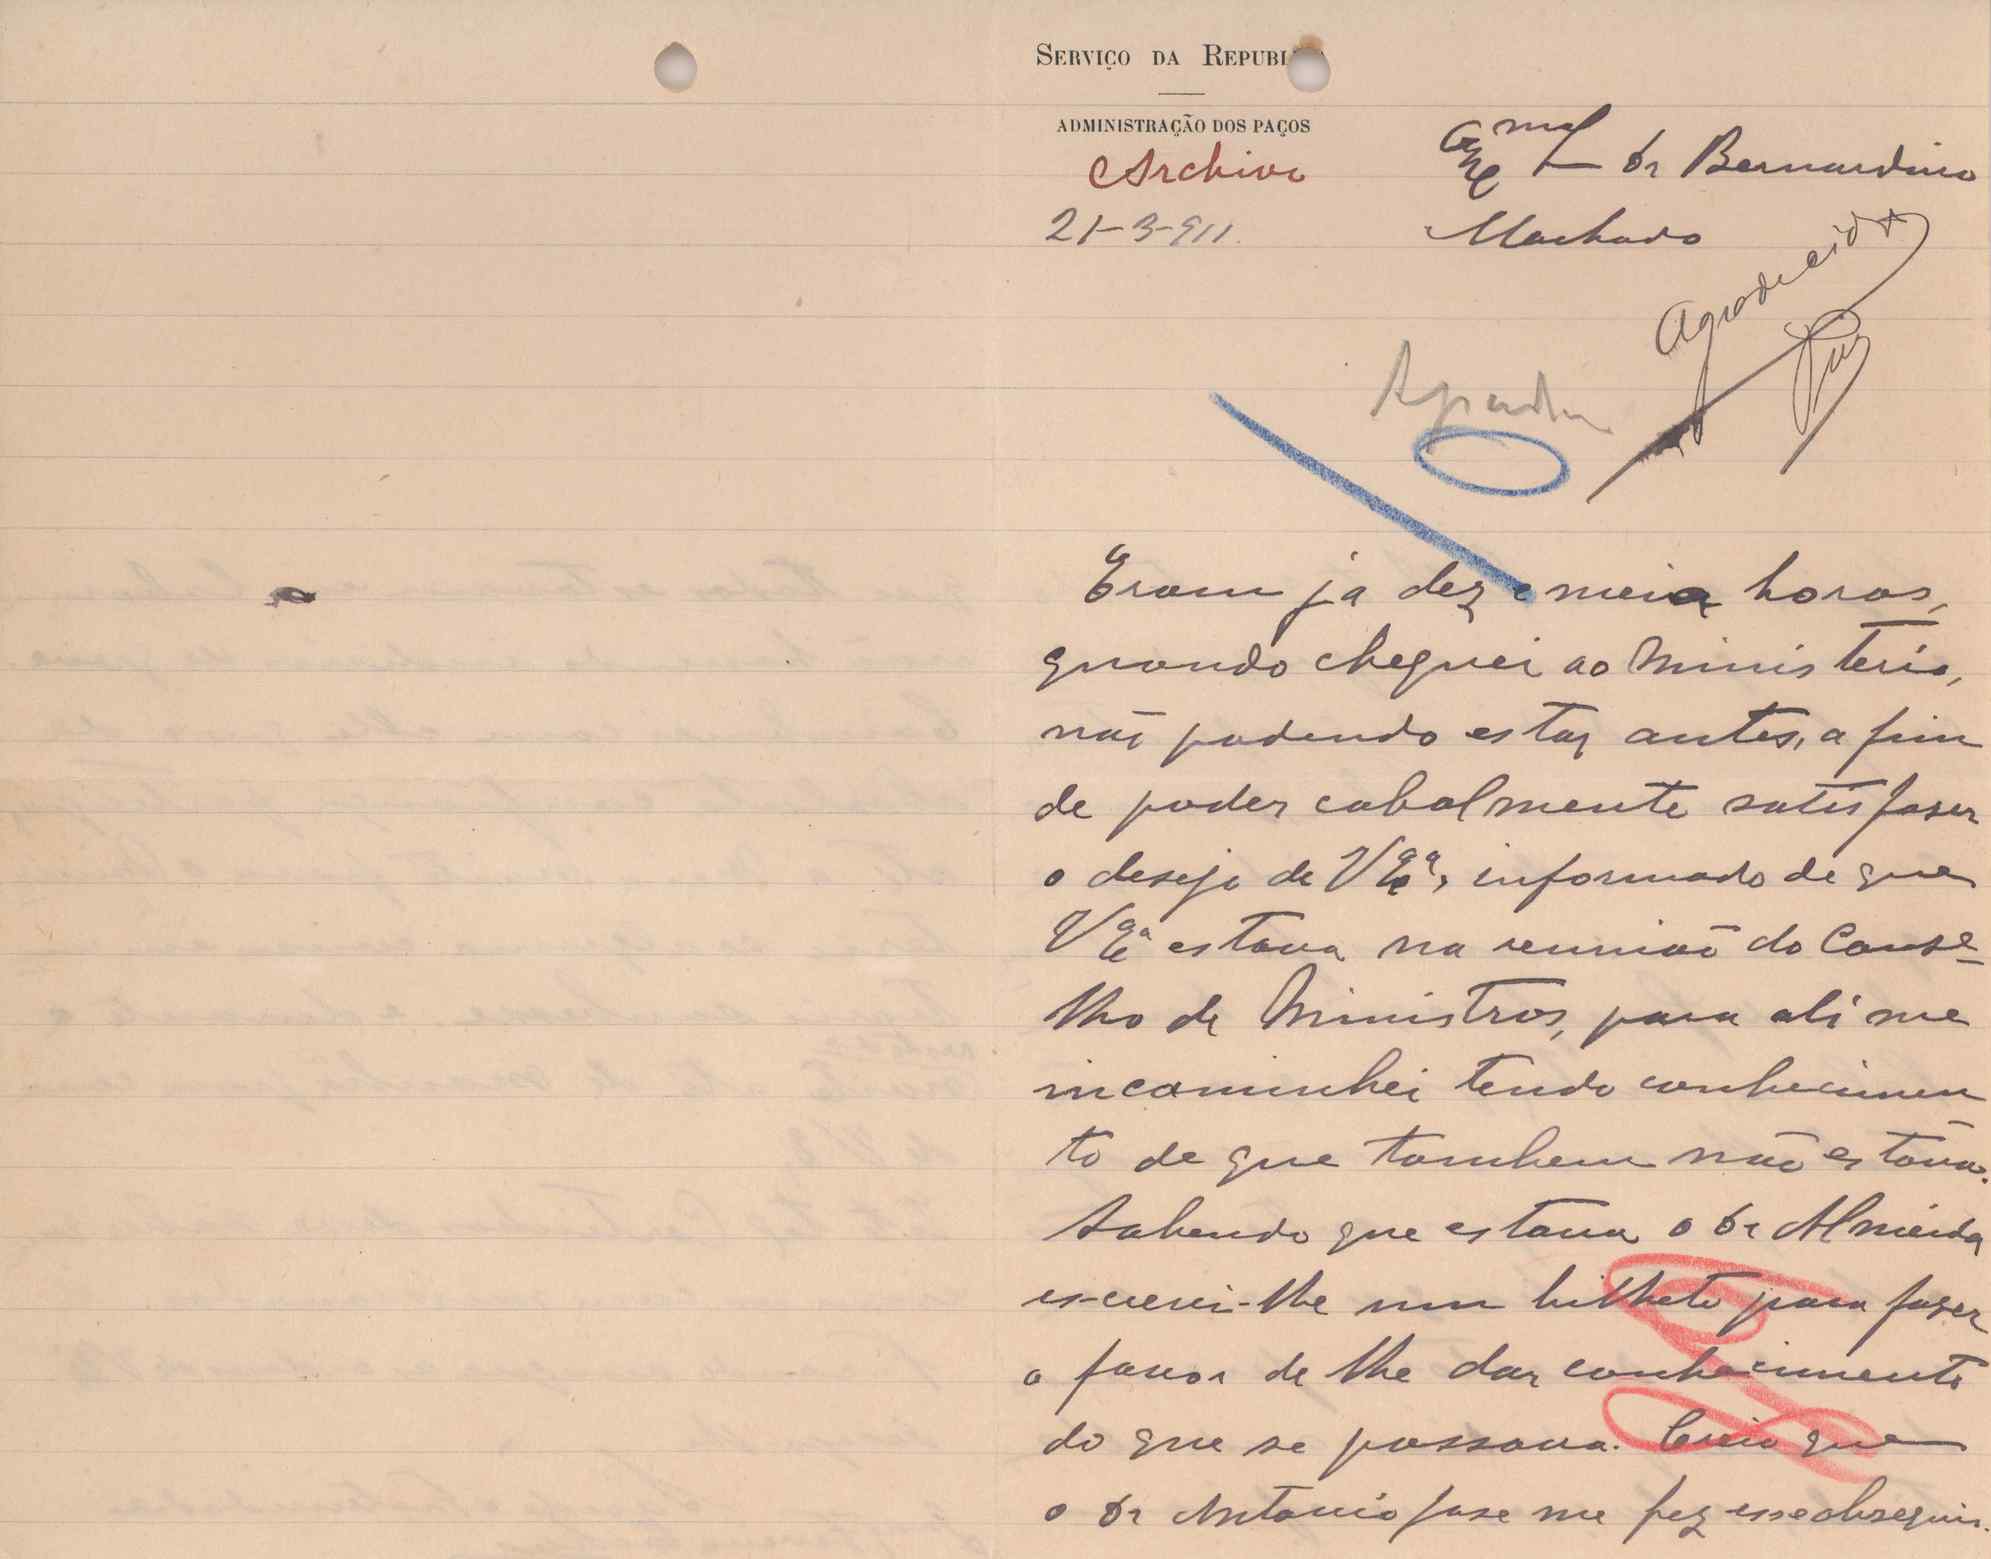 SERVIÇO DA REPUBLI
ADMINISTRAÇÃO DOS PAÇOS
Archivo
21-3-911.
Exmo Dr Bernardino
Machado
Agradecido
Eram já dez e meia horas,
quando cheguei ao Ministerio,
não podendo estar antes, a fim
de poder cabalmente satisfaser
o desejo de V Exa, informado de que
V Exa estava na reunião do Conse-
lho de Ministros, para ali me
incaminhei tendo conhecimen
to de que tambem não estava.
Sabendo que estava o Dr Almeida
escrevi-lhe um bilhete para faser
o favor de lhe dar conhecimento
do que se passava. Creio que
o Dr Antonio Jose me fez esse obsequio.